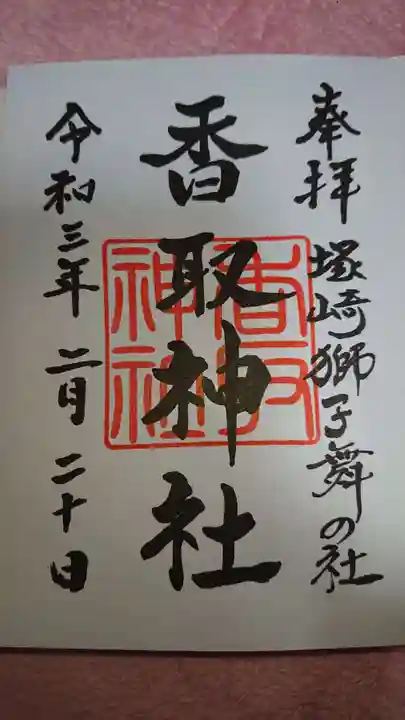 奉拝 塚崎獅子舞の社
香取神社
香取神社
令和三年 二月 二十日